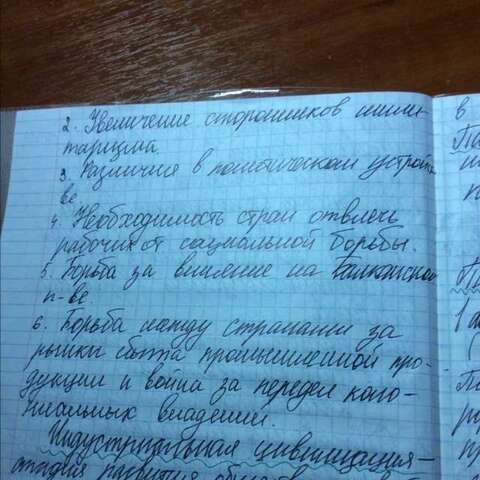 2. Увеличение сторонников мили-
таризма
3. Различия в политическом устройст-
ве
4. Необходимость стран отвлечь
рабочих от социальной борьбы.
5. Борьба за влияние на Балканском
п-ве
6. Борьба между странами за
рынки сбыта промышленной про-
дукции и война за передел коло-
ниальных владений.
Индустриальная цивилизация-
стадия развития
в